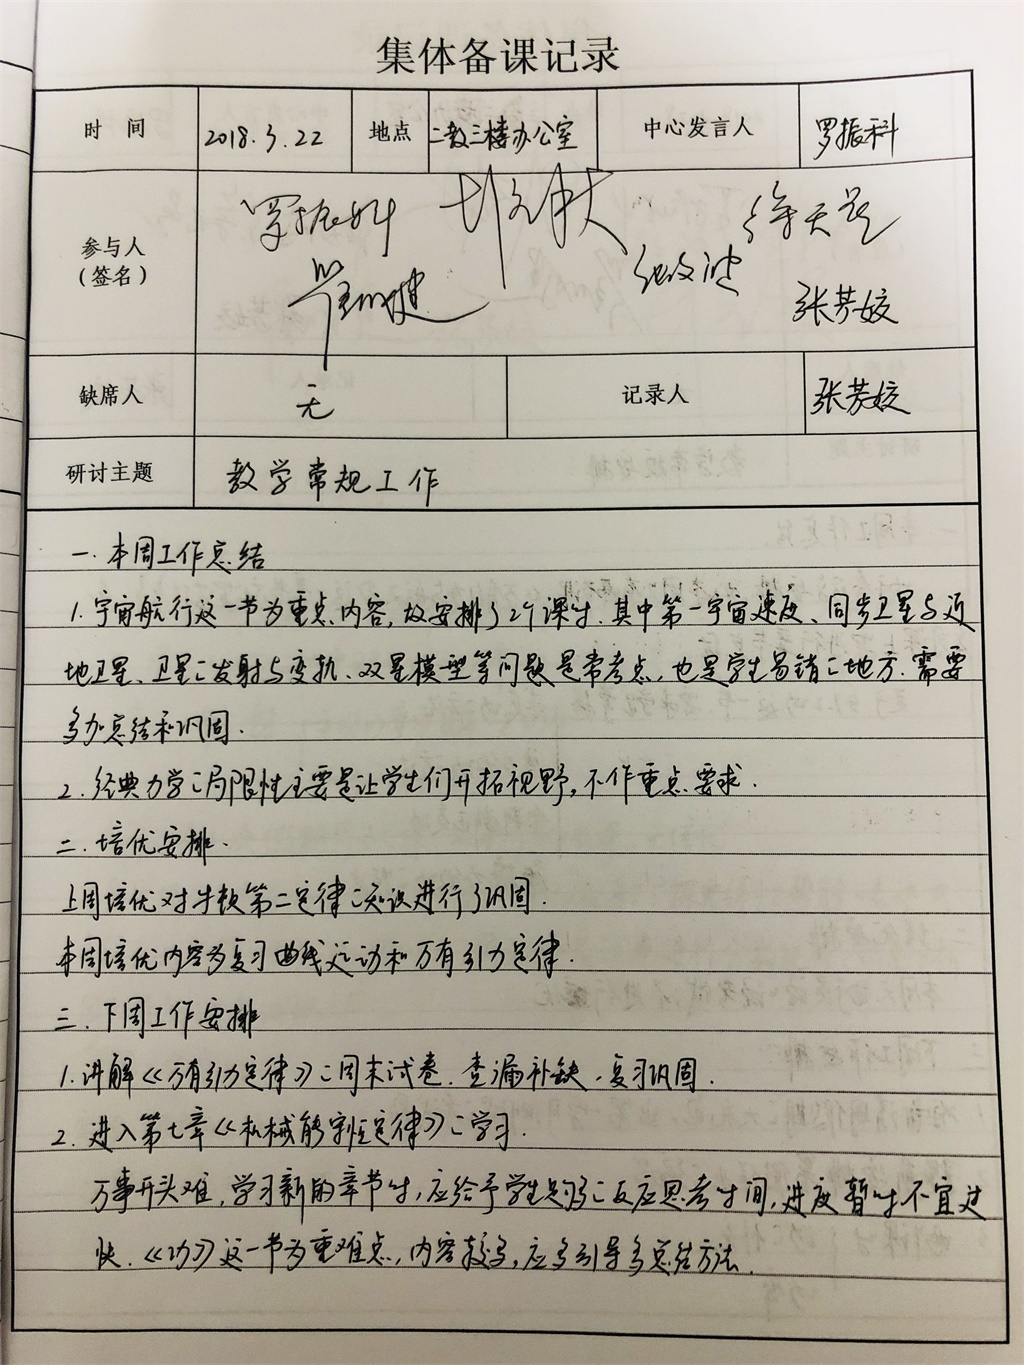 集体备课记录
时 间 2018.3.22 地点 二教三楼办公室 中心发言人 罗振科
参与人
(签名)
罗振科
张芳姣
缺席人 无 记录人 张芳姣
研讨主题 教学常规工作
一.本周工作总结
1.宇宙航行这一节为重点内容,故安排了2个课时.其中第一宇宙速度、同步卫星与近
地卫星、卫星的发射与变轨、双星模型等问题是常考点,也是学生易错的地方.需要
多加总结和巩固.
2.经典力学的局限性主要是让学生们开拓视野,不作重点要求.
二.培优安排.
上周培优对牛顿第二定律的知识进行了巩固.
本周培优内容为复习曲线运动和万有引力定律.
三.下周工作安排
1.讲解《万有引力定律》的周末试卷.查漏补缺,复习巩固.
2.进入第七章《机械能守恒定律》的学习.
万事开头难,学习新的章节时,应给予学生足够的反应思考时间,进度暂时不宜过
快.《功》这一节为重难点,内容较多,应多引导多总结方法.